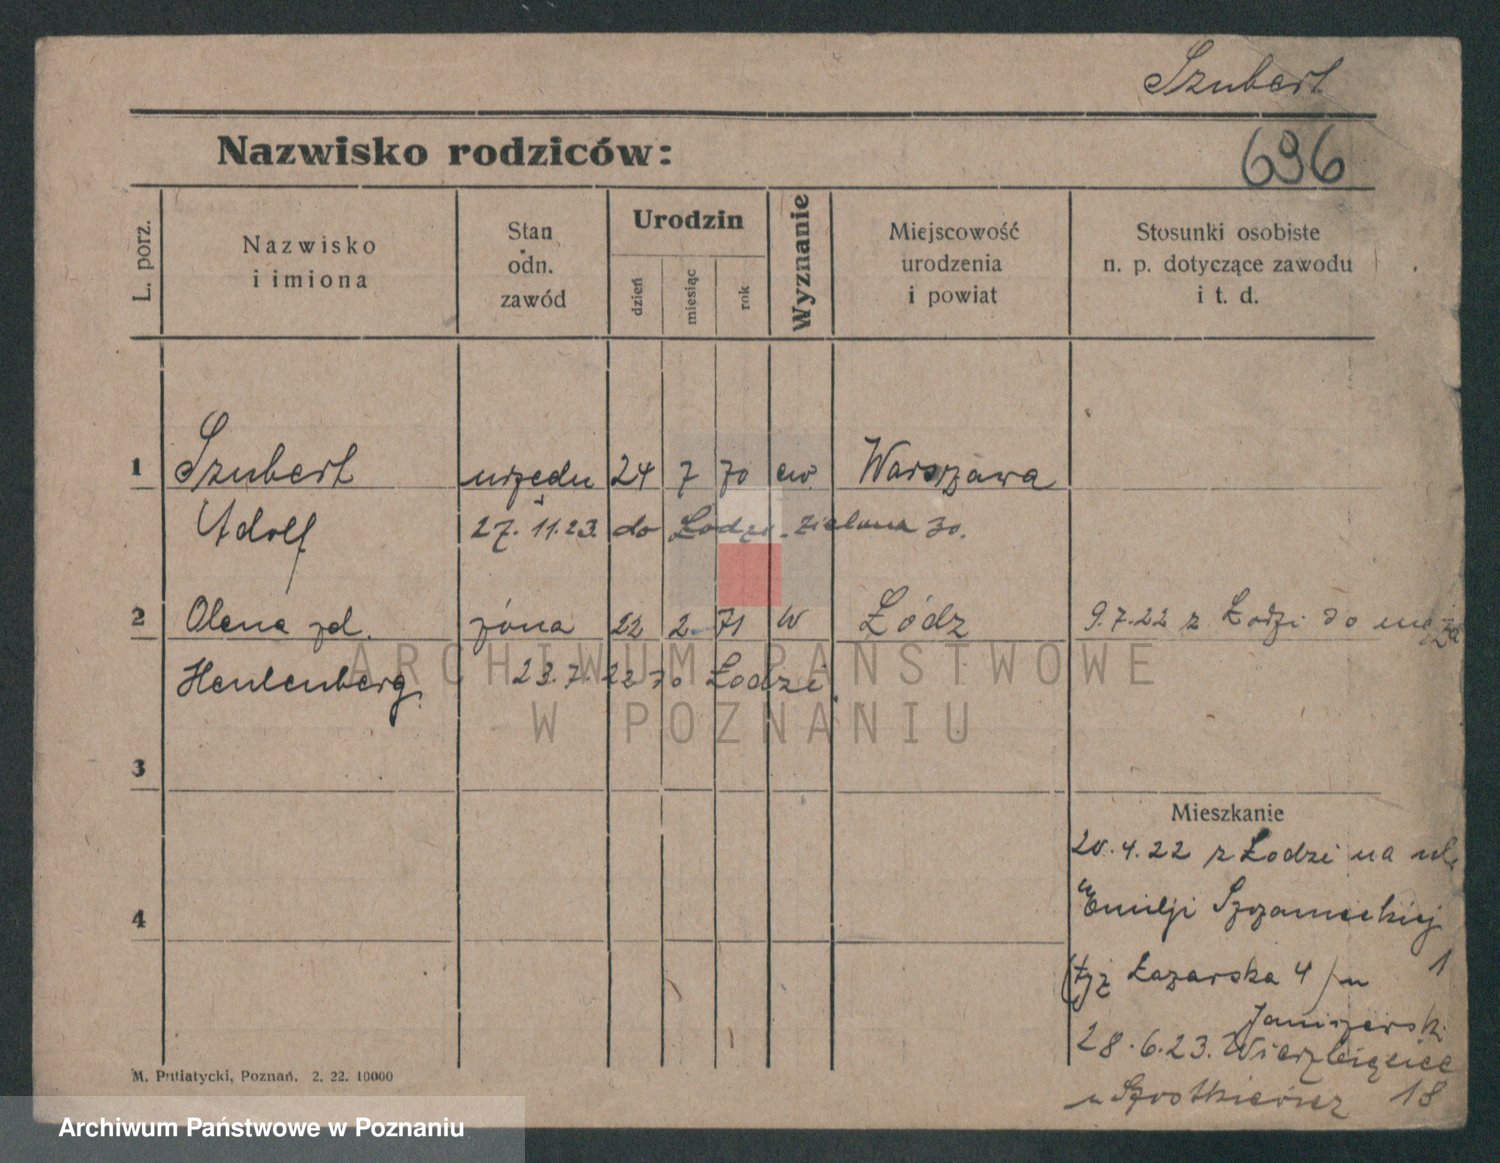 Szubert
Nazwisko rodziców:
696
L. porz.
Nazwisko
i imiona
Stan
odn.
zawód
Urodzin
dzień
miesiąc
rok
Wyznanie
Miejscowość
urodzenia
i powiat
Stosunki osobiste
n. p. dotyczące zawodu
i t. d.
1 Szubert urzędn 24 7 70 ew. Warszawa
Adolf 27. 11. 23. do Łodzi. Zielona 30.
2 Olena zd. żona 22 2 71 W Łódz 9.7.22 z Łodzi do męża
23.7.22 do Łodzi.
ARCHIWUM PAŃSTWOWE
W POZNANIU
3
Mieszkanie
20.4.22 z Łodzi na ul.
4 Emilji Szczanieckiej
1
(tyż Łazarska 4) u
28.6.23. Wierzbięcice
18
M. Putiatycki, Poznań. 2. 22. 10000
Archiwum Państwowe w Poznaniu